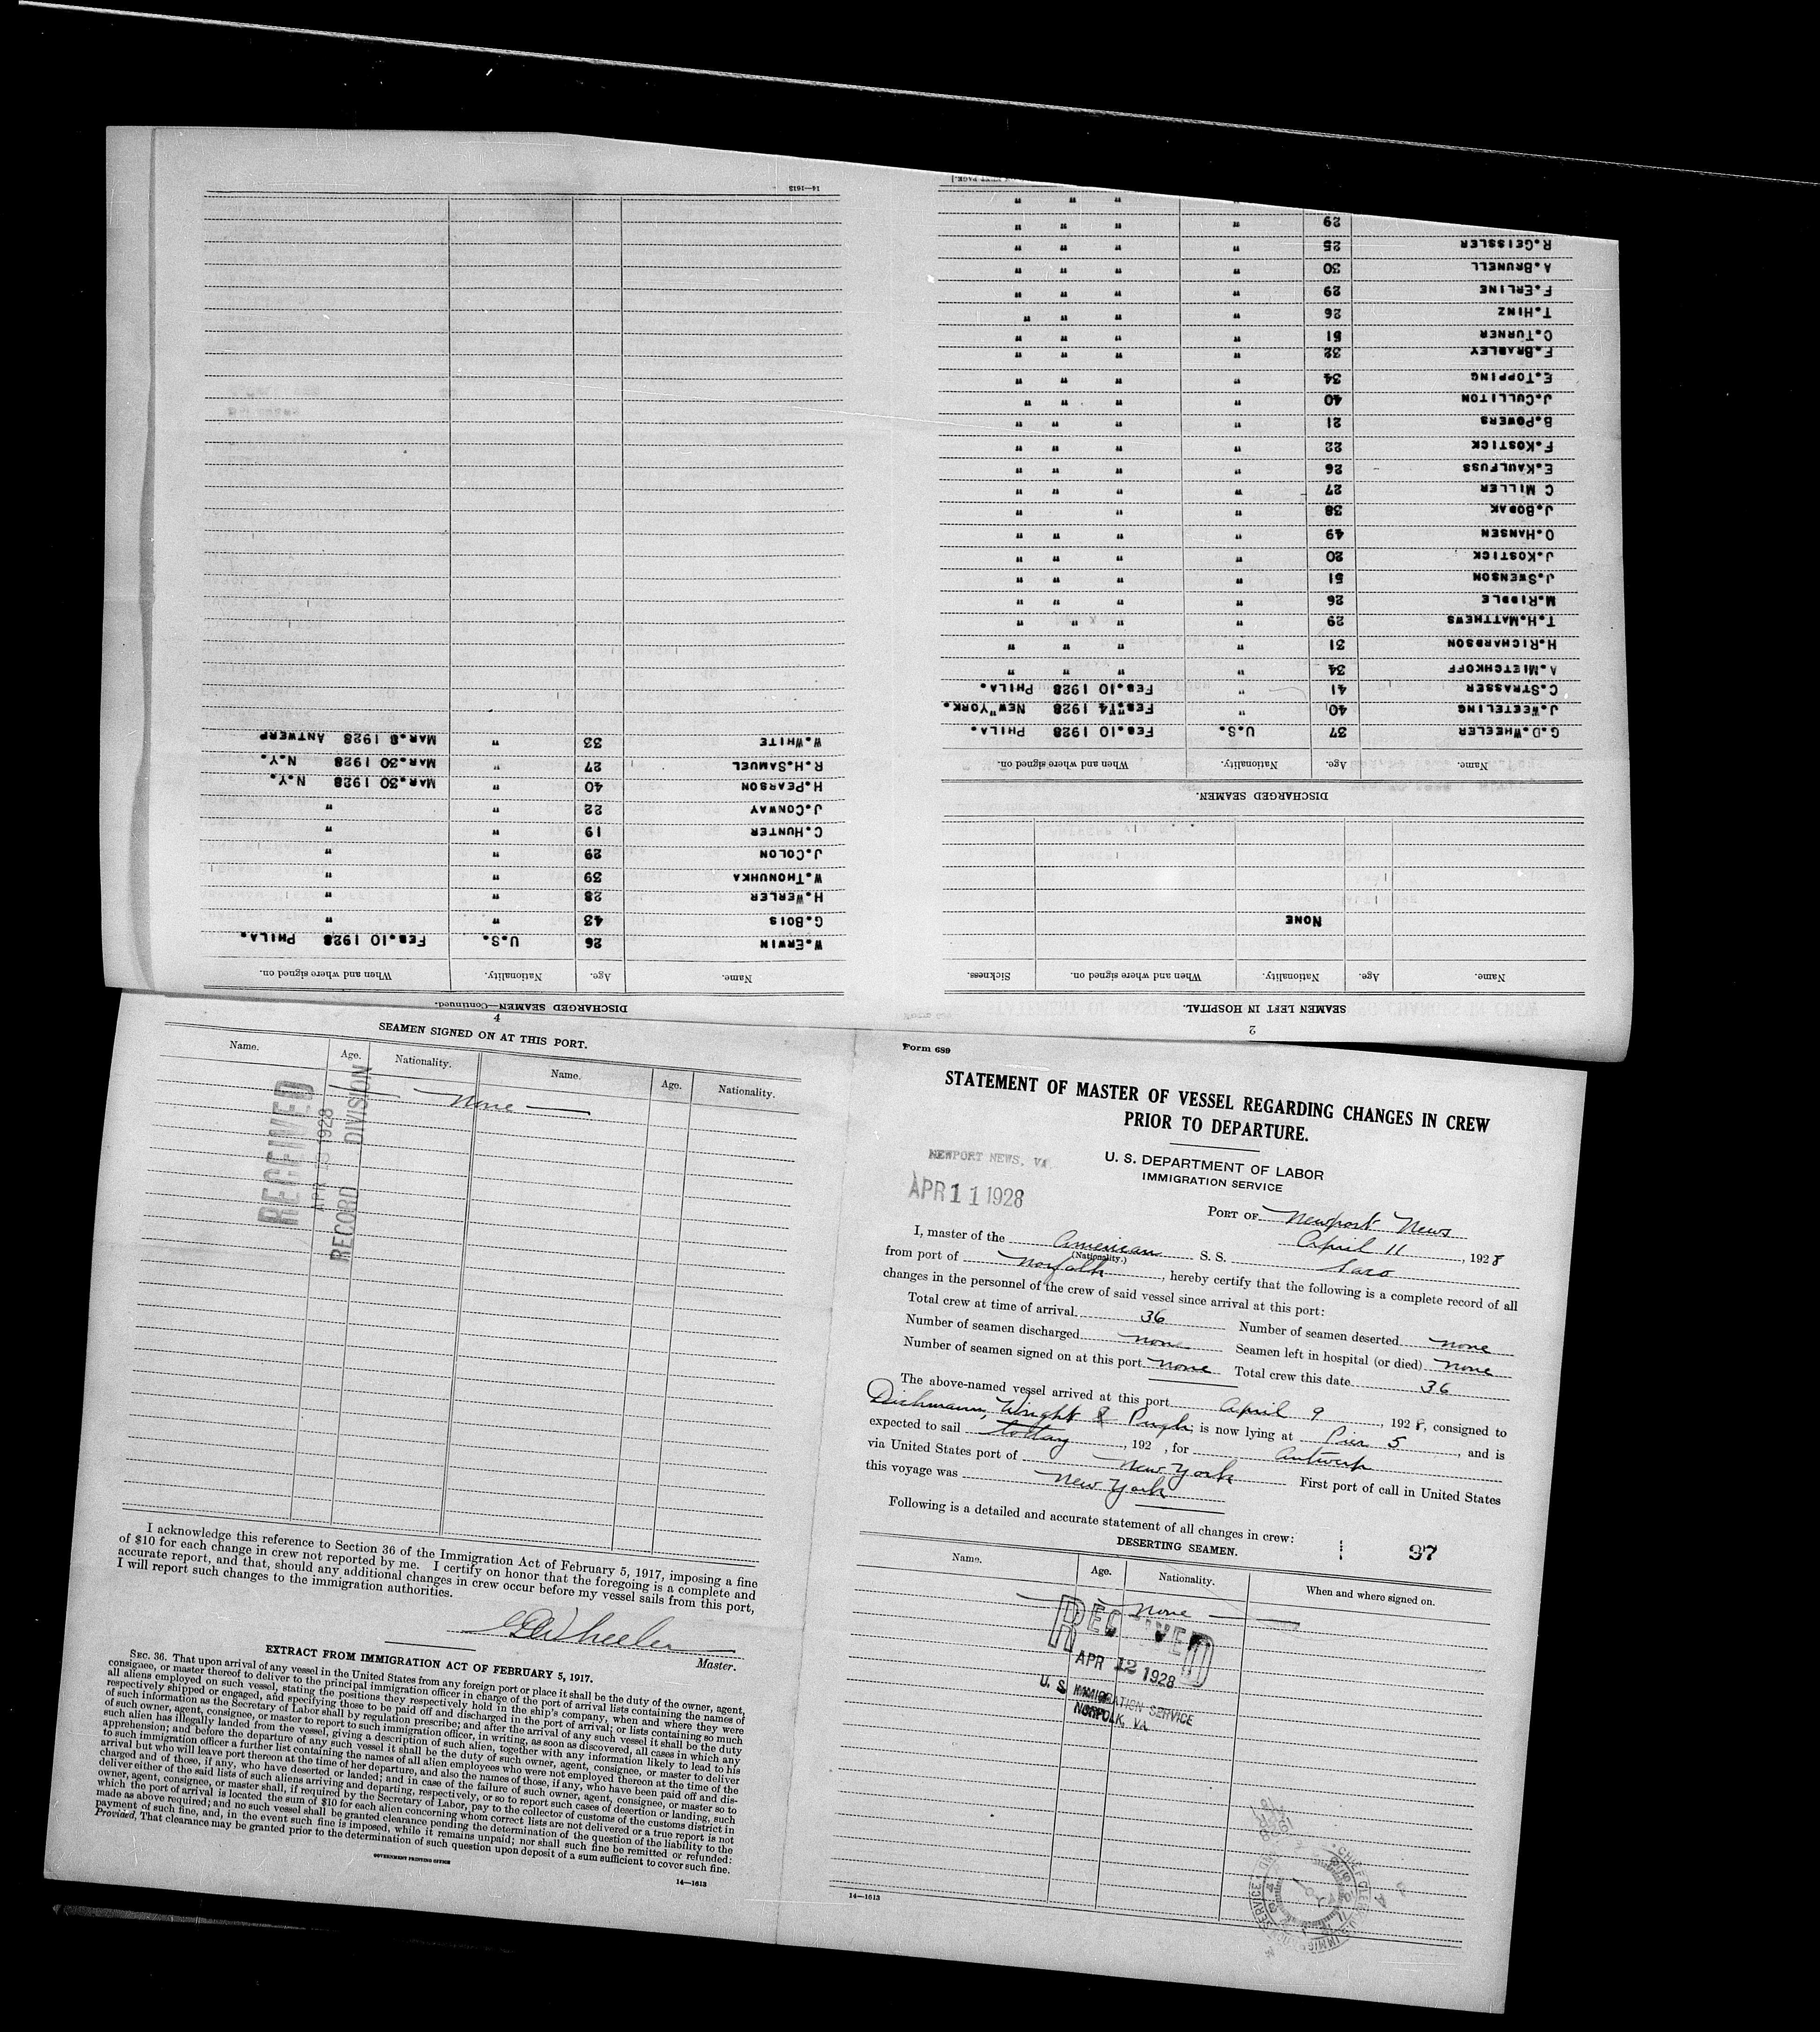 14—1613
DISCHARGED SEAMEN—Continued.
Name. Age. Nationality. When and where signed on.
W.ERWIN 26 U.S. FEB.10 1928 PHILA.
G.BOIS 43 " "
H.WERLER 28 " "
W.THONUHKA 39 " "
J.COLON 29 " "
C.HUNTER 19 " "
J.CONWAY 22 " "
H.PEARSON 40 " MAR.30 1928 N.Y.
R.H.SAMUEL 27 " MAR.30 1928 N.Y.
W.WHITE 33 " MAR.8 1928 ANTWERP
2
SEAMEN LEFT IN HOSPITAL.
Name. Age. Nationality. When and where signed on. Sickness.
NONE
DISCHARGED SEAMEN.
Name. Age. Nationality. When and where signed on.
G.D.WHEELER 37 U.S. FEB.10 1928 PHILA.
J.WEETELING 40 " FEB.14 1928 NEW YORK.
C.STRASSER 41 " FEB.10 1928 PHILA.
A.MIETCHKOFF 34 " " " "
H.RICHARDSON 31 " " " "
T.H.MATTHEWS 29 " " " "
M.RIDDLE 26 " " " "
J.SWENSON 51 " " " "
J.KOSTICK 20 " " " "
O.HANSEN 49 " " " "
J.BOBAK 38 " " "
C MILLER 27 " " " "
E.KAULFUSS 26 " " " "
F.KOSTICK 22 " " " "
B.POWERS 21 " " " "
J.CULLITON 40 " " " "
E.TOPPING 34 " " " "
F.BRADLEY 32 " " " "
O.TURNER 51 " " " "
T.HINZ 26 " " " "
F.ERLINE 29 " " " "
A.BRUNELL 30 " " " "
R.GEISSLER 25 " " " "
29 " " " "
" " "
4
SEAMEN SIGNED ON AT THIS PORT.
Name. Age. Nationality. Name. Age. Nationality.
None
RECEIVED
APR 1928
RECORD DIVISION
I acknowledge this reference to Section 36 of the Immigration Act of February 5, 1917, imposing a fine
of $10 for each change in crew not reported by me. I certify on honor that the foregoing is a complete and
accurate report, and that, should any additional changes in crew occur before my vessel sails from this port,
I will report such changes to the immigration authorities.
GDWheeler
Master.
EXTRACT FROM IMMIGRATION ACT OF FEBRUARY 5, 1917.
SEC. 36. That upon arrival of any vessel in the United States from any foreign port or place it shall be the duty of the owner, agent,
consignee, or master thereof to deliver to the principal immigration officer in charge of the port of arrival lists containing the names of
all aliens employed on such vessel, stating the positions they respectively hold in the ship's company, when and where they were
respectively shipped or engaged, and specifying those to be paid off and discharged in the port of arrival; or lists containing so much
of such information as the Secretary of Labor shall by regulation prescribe; and after the arrival of any such vessel it shall be the duty
of such owner, agent, consignee, or master to report to such immigration officer, in writing, as soon as discovered, all cases in which any
such alien has illegally landed from the vessel, giving a description of such alien, together with any information likely to lead to his
apprehension; and before the departure of any such vessel it shall be the duty of such owner, agent, consignee, or master to deliver
to such immigration officer a further list containing the names of all alien employees who were not employed thereon at the time of the
arrival but who will leave port thereon at the time of her departure, and also the names of those, if any, who have been paid off and dis-
charged and of those, if any, who have deserted or landed; and in case of the failure of such owner, agent, consignee, or master so to
deliver either of the said lists of such aliens arriving and departing, respectively, or so to report such cases of desertion or landing, such
owner, agent, consignee, or master shall, if required by the Secretary of Labor, pay to the collector of customs of the customs district in
which the port of arrival is located the sum of $10 for each alien concerning whom correct lists are not delivered or a true report is not
made as above required; and no such vessel shall be granted clearance pending the determination of the question of the liability to the
payment of such fine, and, in the event such fine is imposed, while it remains unpaid; nor shall such fine be remitted or refunded:
Provided, That clearance may be granted prior to the determination of such question upon deposit of a sum sufficient to cover such fine.
GOVERNMENT PRINTING OFFICE
14—1613
Form 689
STATEMENT OF MASTER OF VESSEL REGARDING CHANGES IN CREW
PRIOR TO DEPARTURE.
U. S. DEPARTMENT OF LABOR
IMMIGRATION SERVICE
NEWPORT NEWS, VA.
APR 11 1928
PORT OF Newport News
April 11, 1928
I, master of the American S. S.
(Nationality.)
from port of Norfolk, hereby certify that the following is a complete record of all
changes in the personnel of the crew of said vessel since arrival at this port:
Total crew at time of arrival 36 Number of seamen deserted none
Number of seamen discharged none Seamen left in hospital (or died) none
Number of seamen signed on at this port none Total crew this date 36
The above-named vessel arrived at this port April 9, 1928, consigned to
Dichmann, Wright & Pugh; is now lying at Pier 5, and is
expected to sail today, 192 , for Antwerp
via United States port of New York First port of call in United States
this voyage was New York
Following is a detailed and accurate statement of all changes in crew:
97
DESERTING SEAMEN.
Name. Age. Nationality. When and where signed on.
None
RECEIVED
APR 12 1928
U. S. IMMIGRATION SERVICE
NORFOLK, VA.
14—1613